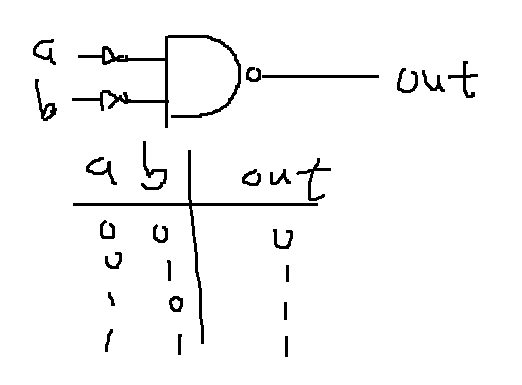 a
b out
a b out
0 0 0
0 1 1
1 0 1
1 1 1